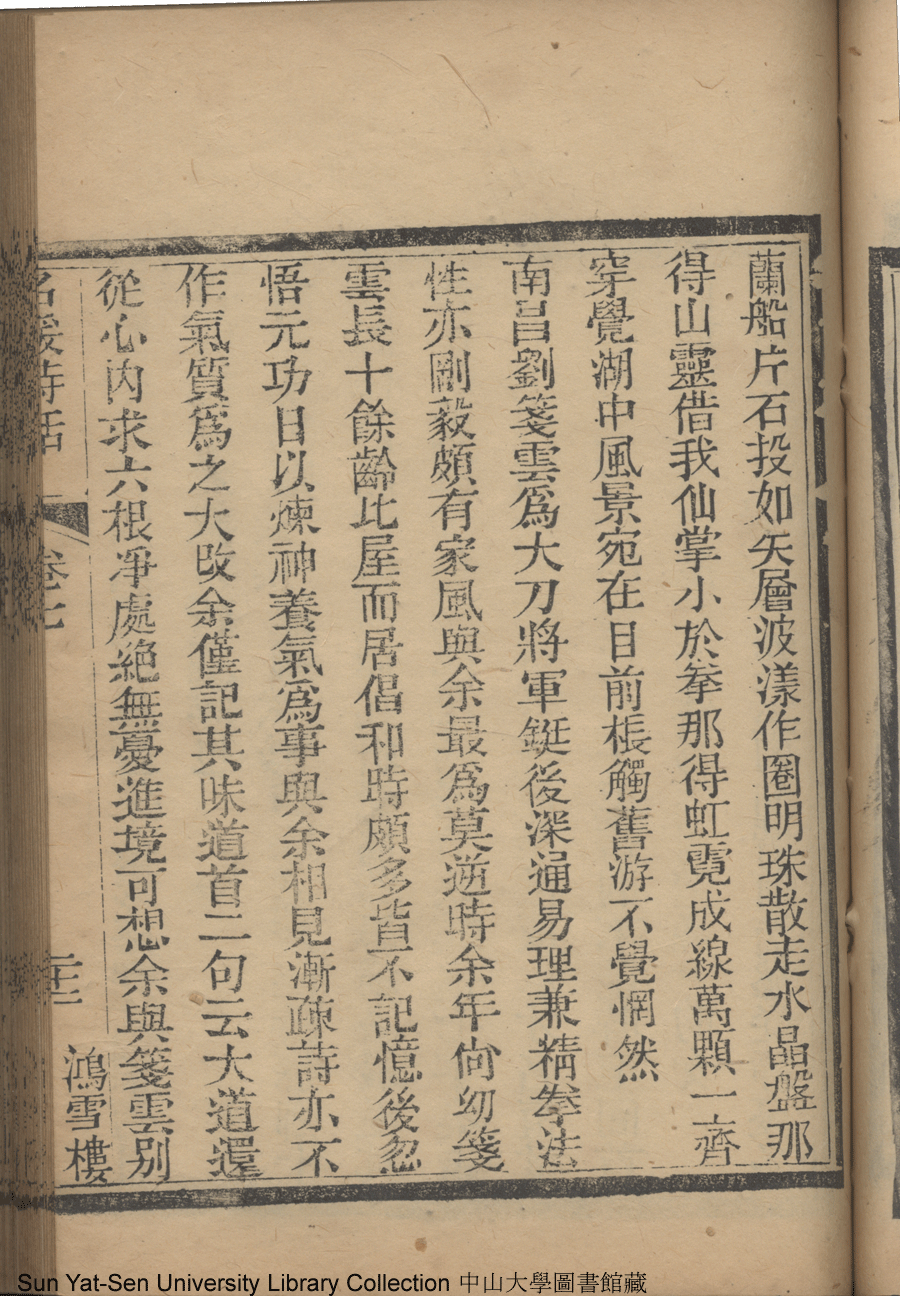 蘭船片石投如矢層波漾作圈明珠散走水晶盤那
得山靈借我仙掌小於拳那得虹霓成線萬顆一齊
穿覺湖中風景宛在目前棖觸舊游不覺惘然
南昌劉箋雲爲大刀將軍鋌後深通易理兼精拳法
性亦剛毅頗有家風與余最爲莫逆時余年尙幼箋
雲長十餘齡比屋而居倡和時頗多皆不記憶後忽
悟元功日以煉神養氣爲事與余相見漸疎詩亦不
作氣質爲之大改余僅記其味道首二句云大道還
從心內求六根凈處絕無憂進境可想余與箋雲別
名媛詩話 卷七 二十二 鴻雪樓
Sun Yat-Sen University Library Collection 中山大學圖書館藏